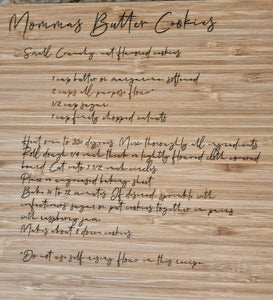 Mommas Butter Cookies
Small Crunchy nut flavored cookies
1 cup butter or margarine softened
2 cups all purpose flour*
1/2 cup sugar
1 cup finely chopped walnuts
Heat oven to 350 degrees. Mix thoroughly all ingredients.
Roll dough 1/4 inch thick on lightly floured cloth covered
board. Cut into 1 1/2 inch circles.
Place on ungreased baking sheet
Bake 10 to 12 minutes. If desired sprinkle with
confectioners sugar or put cookies together in pairs
with raspberry jam
Makes about 3 dozen cookies
*Do not use self-rising flour in this recipe